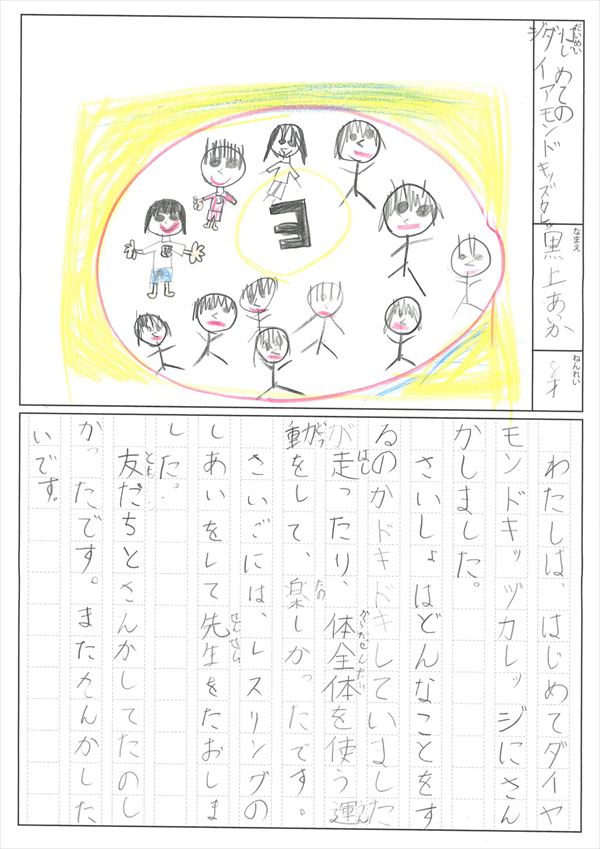 だいめい
はじめての
ダイアモンドキッズカレッジ
なまえ
黒上あいか
ねんれい
8才
ヨ
わたしは、はじめてダイヤ
モンドキッヅカレッジにさん
かしました。
さいしょはどんなことをす
るのかドキドキしていました
が走ったり、体全体を使う運
動をして、楽しかったです。
さいごには、レスリングの
しあいをして先生をたおしま
した。
友だちとさんかしてたのし
かったです。またさんかした
いです。